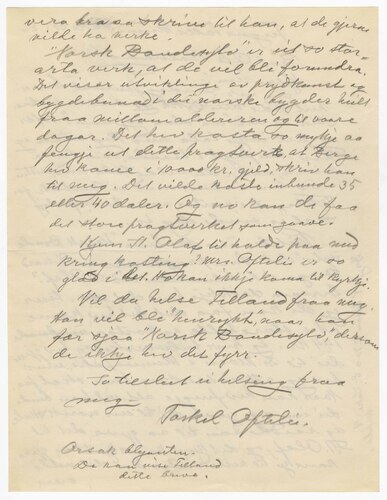 vera braaa skrive til han, at de gjerne
vilde ha verke.
"Norsk Bondesylv" er eit so stor-
arta verk, at de vil bli forundra.
Det visar utviklinge av prydkunst og
bygdebunad i dei norske bygder heilt
fraa millomalderen og til vaare
dagar. Det hev kosta so mykje aa
pengje ut dette pragtverk, at
hev kome i 10000 kr. gjeld, skriv han
til meg. Det vilde koste inbunde 35
eller 40 daler. Og no kan de faa
det store pragtverket som gaave.
Kjem St. Olaf til halde paa med
kringkasting? Mrs. Oftelie er so
glad i det. Ho kan ikkje koma til kyrkje.
Vil du helse Tilland fraa meg.
Han vil bli "henrykt", naar han
fær sjaa "Norsk Bondesylv", dersom
de ikkje hev det fyrr.
So tilslut ei helsing fraa
meg.
Torkel Oftelie.
Orsak blyanten.
Du kan vise Tilland
dette breve.